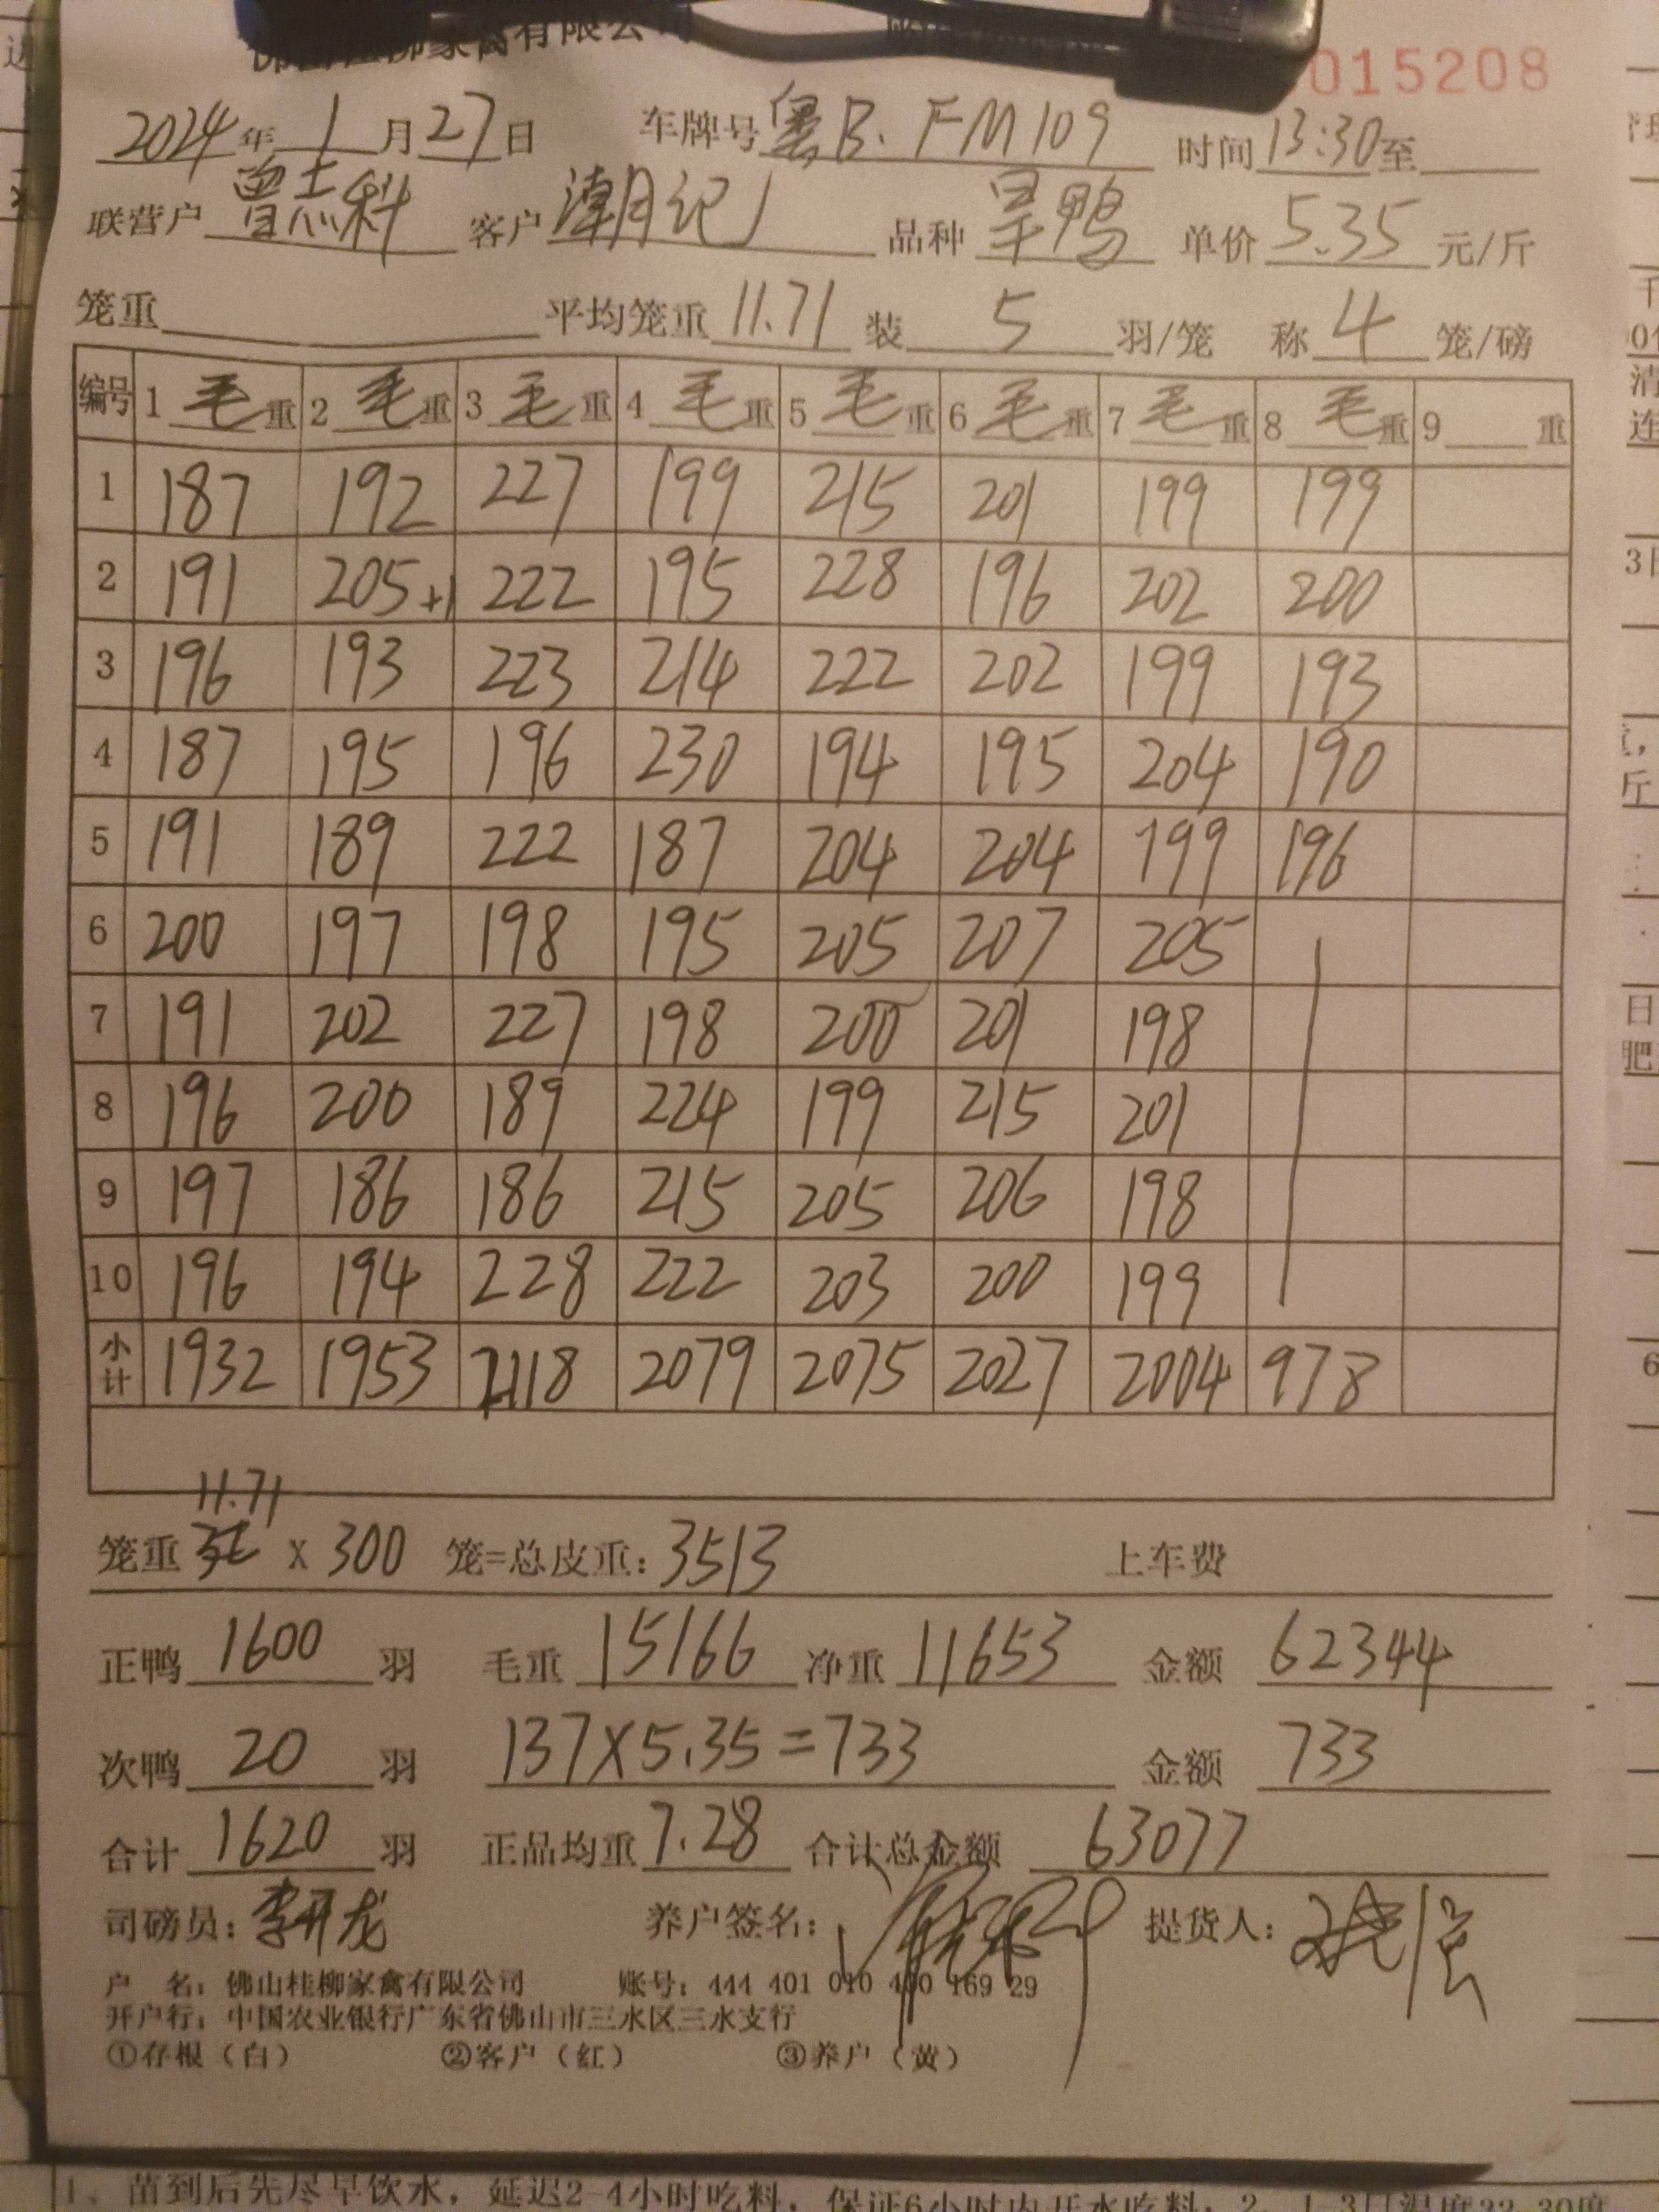 佛山桂柳家禽有限公司
015208
2024年1月27日 车牌号粤B.FM109 时间13:30至
联营户曾志科 客户潮月记 品种旱鸭 单价5.35元/斤
笼重 平均笼重11.71 装5羽/笼 称4笼/磅
编号 1毛重 2毛重 3毛重 4毛重 5毛重 6毛重 7毛重 8毛重 9重
1 187 192 227 199 215 201 199 199
2 191 205+1 222 195 228 196 202 200
3 196 193 223 214 222 202 199 193
4 187 195 196 230 194 195 204 190
5 191 189 222 187 204 204 199 196
6 200 197 198 195 205 207 205
7 191 202 227 198 200 201 198
8 196 200 189 224 199 215 201
9 197 186 186 215 205 206 198
10 196 194 228 222 203 200 199
小计 1932 1953 2118 2079 2075 2027 2004 978
11.71
笼重 x 300 笼=总皮重:3513 上车费
正鸭1600羽 毛重15166 净重11653 金额62344
次鸭20羽 137x5.35=733 金额733
合计1620羽 正品均重7.28 合计总金额63077
司磅员:李开龙 养户签名: 提货人:
户 名:佛山桂柳家禽有限公司 账号:444 401 010 400 169 29
开户行:中国农业银行广东省佛山市三水区三水支行
①存根(白) ②客户(红) ③养户(黄)
1、苗到后先尽早饮水,延迟2-4小时吃料,保证6小时内开水吃料;2、1-3日温度32-30度